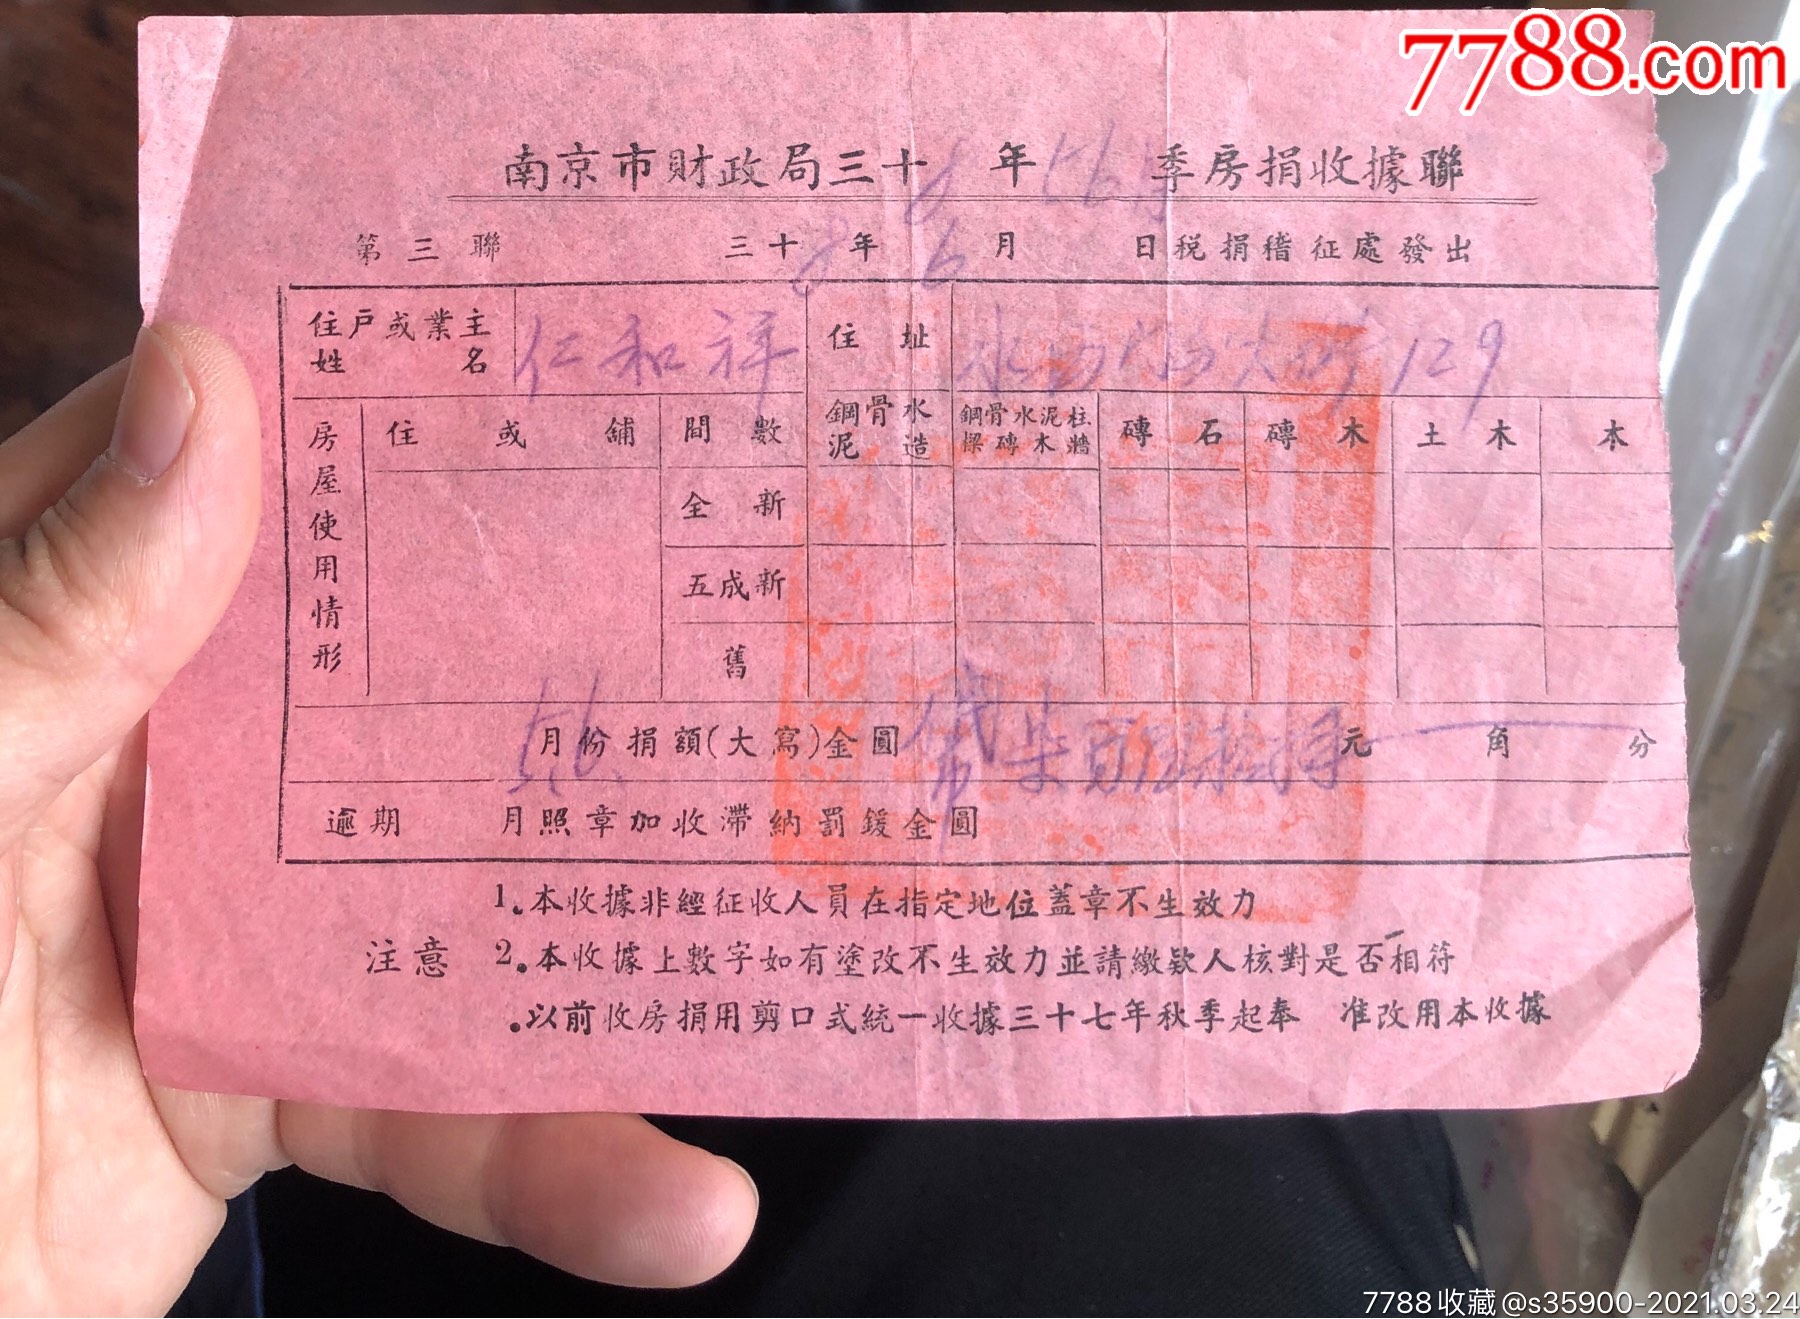 7788.com
南京市財政局三十8年5.6月季房捐收據聯
第三聯 三十8年6月 日税捐稽征處發出
住戶或業主姓名 仁和祥 住址 水西 大街129
房屋使用情形 住或舖 間數 鋼骨水泥造 鋼骨水泥柱樑磚木牆 磚石 磚木 土木 木
全新
五成新
舊
5.6.月份捐額(大寫)金圓 柒百 元 角 分
逾期 月照章加收滯納罰鍰金圓
注意
1.本收據非經征收人員在指定地位蓋章不生效力
2.本收據上數字如有塗改不生效力並請繳欵人核對是否相符
.以前收房捐用剪口式統一收據三十七年秋季起奉 准改用本收據
7788收藏@s35900-2021.03.24